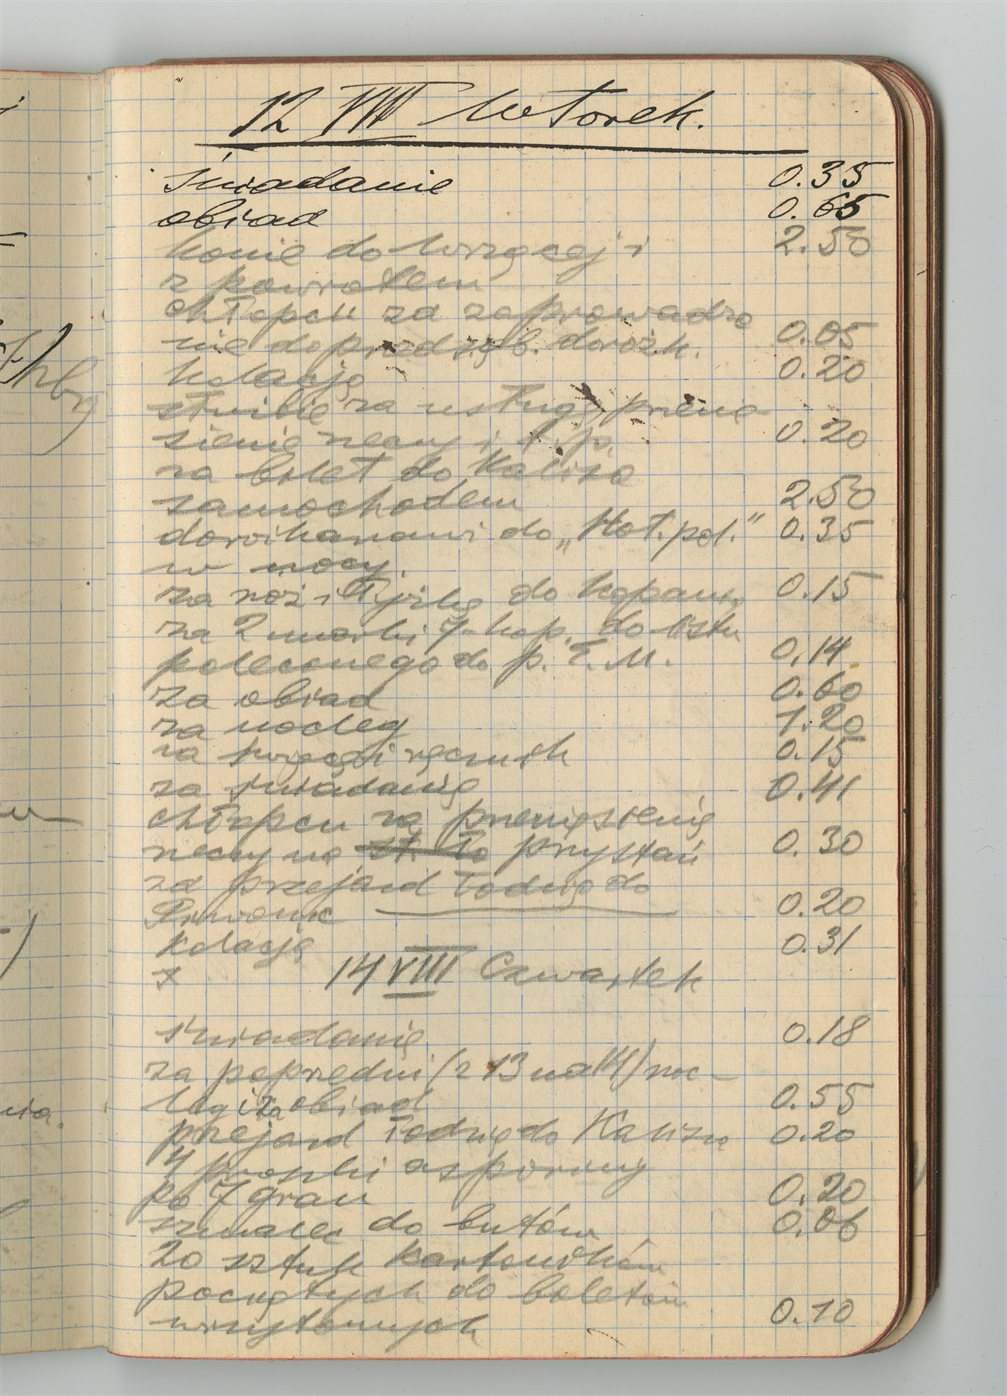 12 VIII Wtorek.
śniadanie 0.35
obiad 0.65
konie do Wrzącej i 2.50
z powrotem
chłopcu za zaprowadze
nie do przedsięb. dorożk. 0.05
kolacja 0.20
służbie za usługę, przenie
sienie rzeczy i t. p. 0.20
za bilet do Kalisza
samochodem 2.50
dorożkarzowi do „Hot. pol." 0.35
w nocy.
za nóż i łyżkę do kopania 0.15
za 2 marki 7-kop. do listu
poleconego do p. E. M. 0.14
za obiad 0.60
za nocleg 1.20
za świecę i ręcznik 0.15
za śniadanie 0.41
chłopcu za przeniesienie
rzeczy na st. to przystań 0.30
za przejazd łodzią do
Piwonic 0.20
Kolacja 0.31
x 14 VIII Czwartek
śniadanie 0.18
za poprzedni (z 13 na 14) noc-
leg i za obiad 0.55
przejazd łodzią do Kalisza 0.20
4 proszki aspiryny
po 7 gran 0.20
szuwaks do butów 0.06
20 sztuk kartoników
pociętych do biletów
wizytowych 0.10